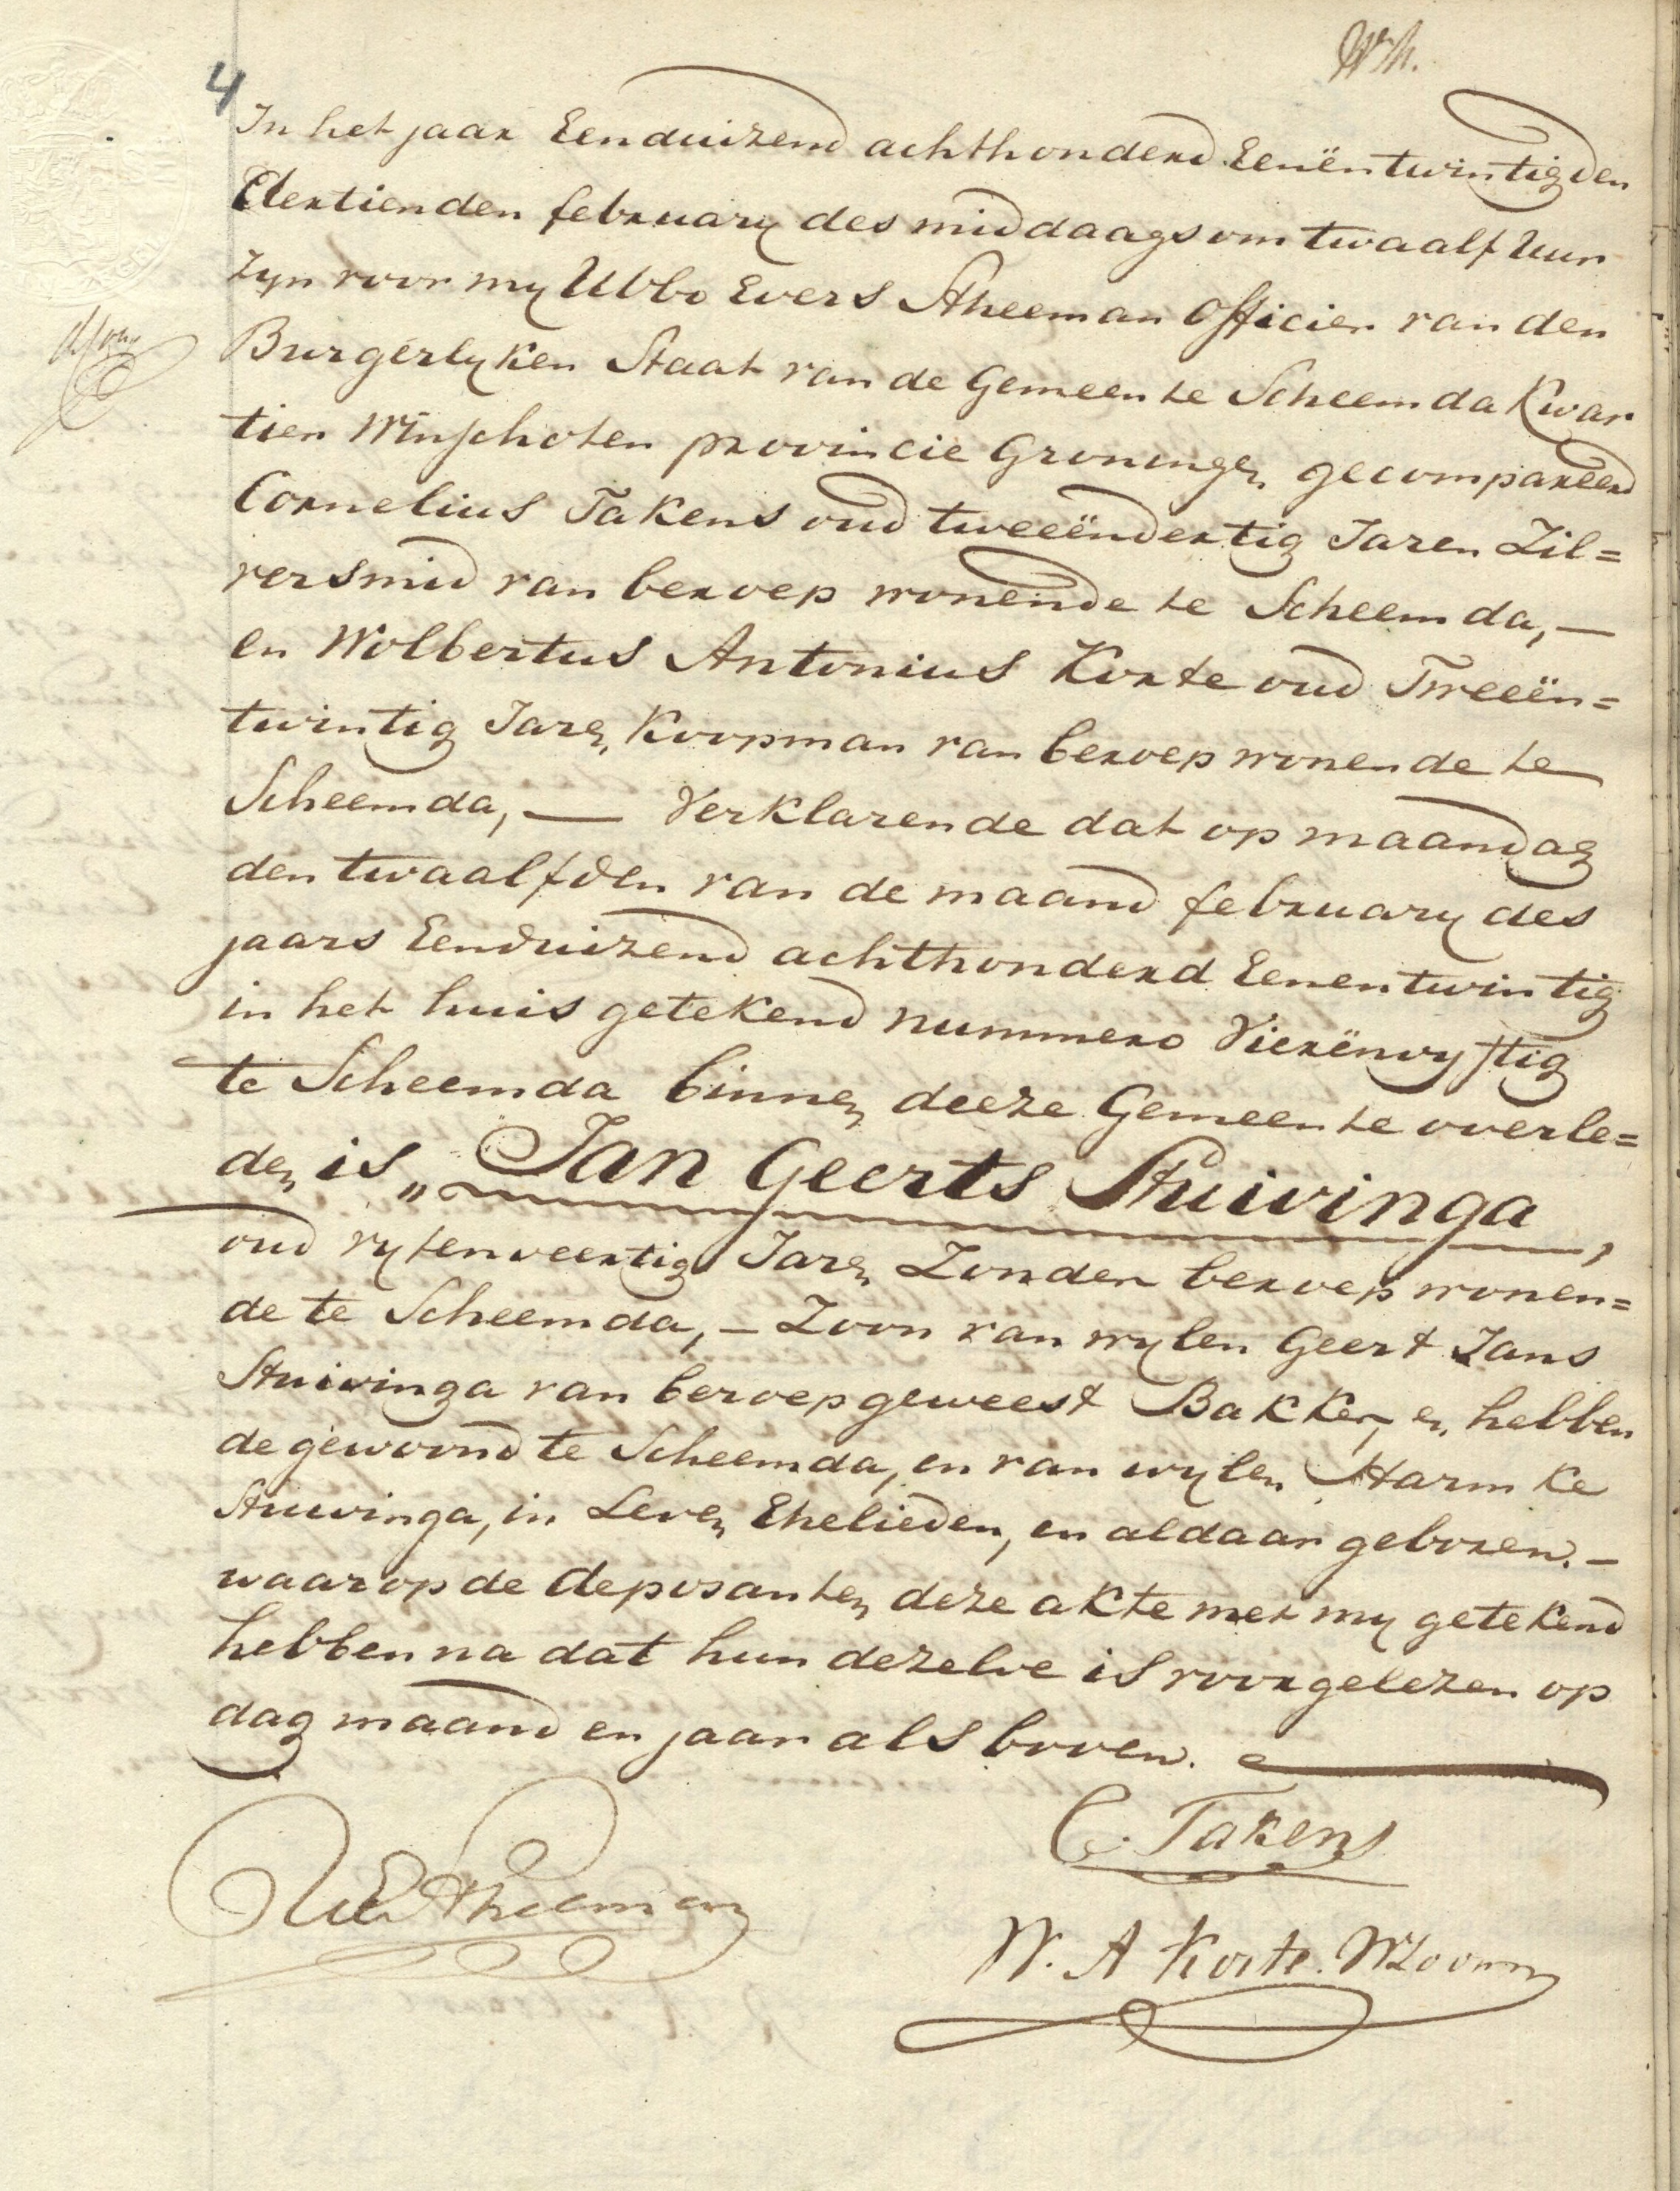 4
In het jaar Eenduizend achthonderd Eenëntwintig den
dertienden february des middaags om twaalf Uur
zyn voor my Ubbo Evers Stheeman Officier van den
Burgerlyken Staat van de Gemeente Scheemda Kwar
tier Winschoten provincie Groningen gecompareerd
Cornelius Takens oud tweeëndertig Jaren Zil=
versmid van beroep wonende te Scheemda, —
en Wolbertus Antonius Korte oud Tweeën=
twintig Jaren Koopman van beroep wonende te
Scheemda, — Verklarende dat op maandag
den twaalfden van de maand february des
jaars Eenduizend achthonderd Eenentwintig
in het huis getekend nummero Vierënvyftig
te Scheemda binnen deeze Gemeente overle=
den is „ Jan Geerts Stuivinga,
oud vyfenveertig Jaren Zonder beroep wonen=
de te Scheemda, — Zoon van wylen Geert Jans
Stuivinga van beroep geweest Bakker, en hebben
de gewoond te Scheemda, en van wylen Harmke
Stuivinga, in Leven Ehelieden, en aldaar geboren. —
waarop de deposanten deze akte met my getekend
hebben na dat hun dezelve is voorgelezen op
dag maand en jaar als boven.
C. Takens
UE Stheeman
W. A Korte